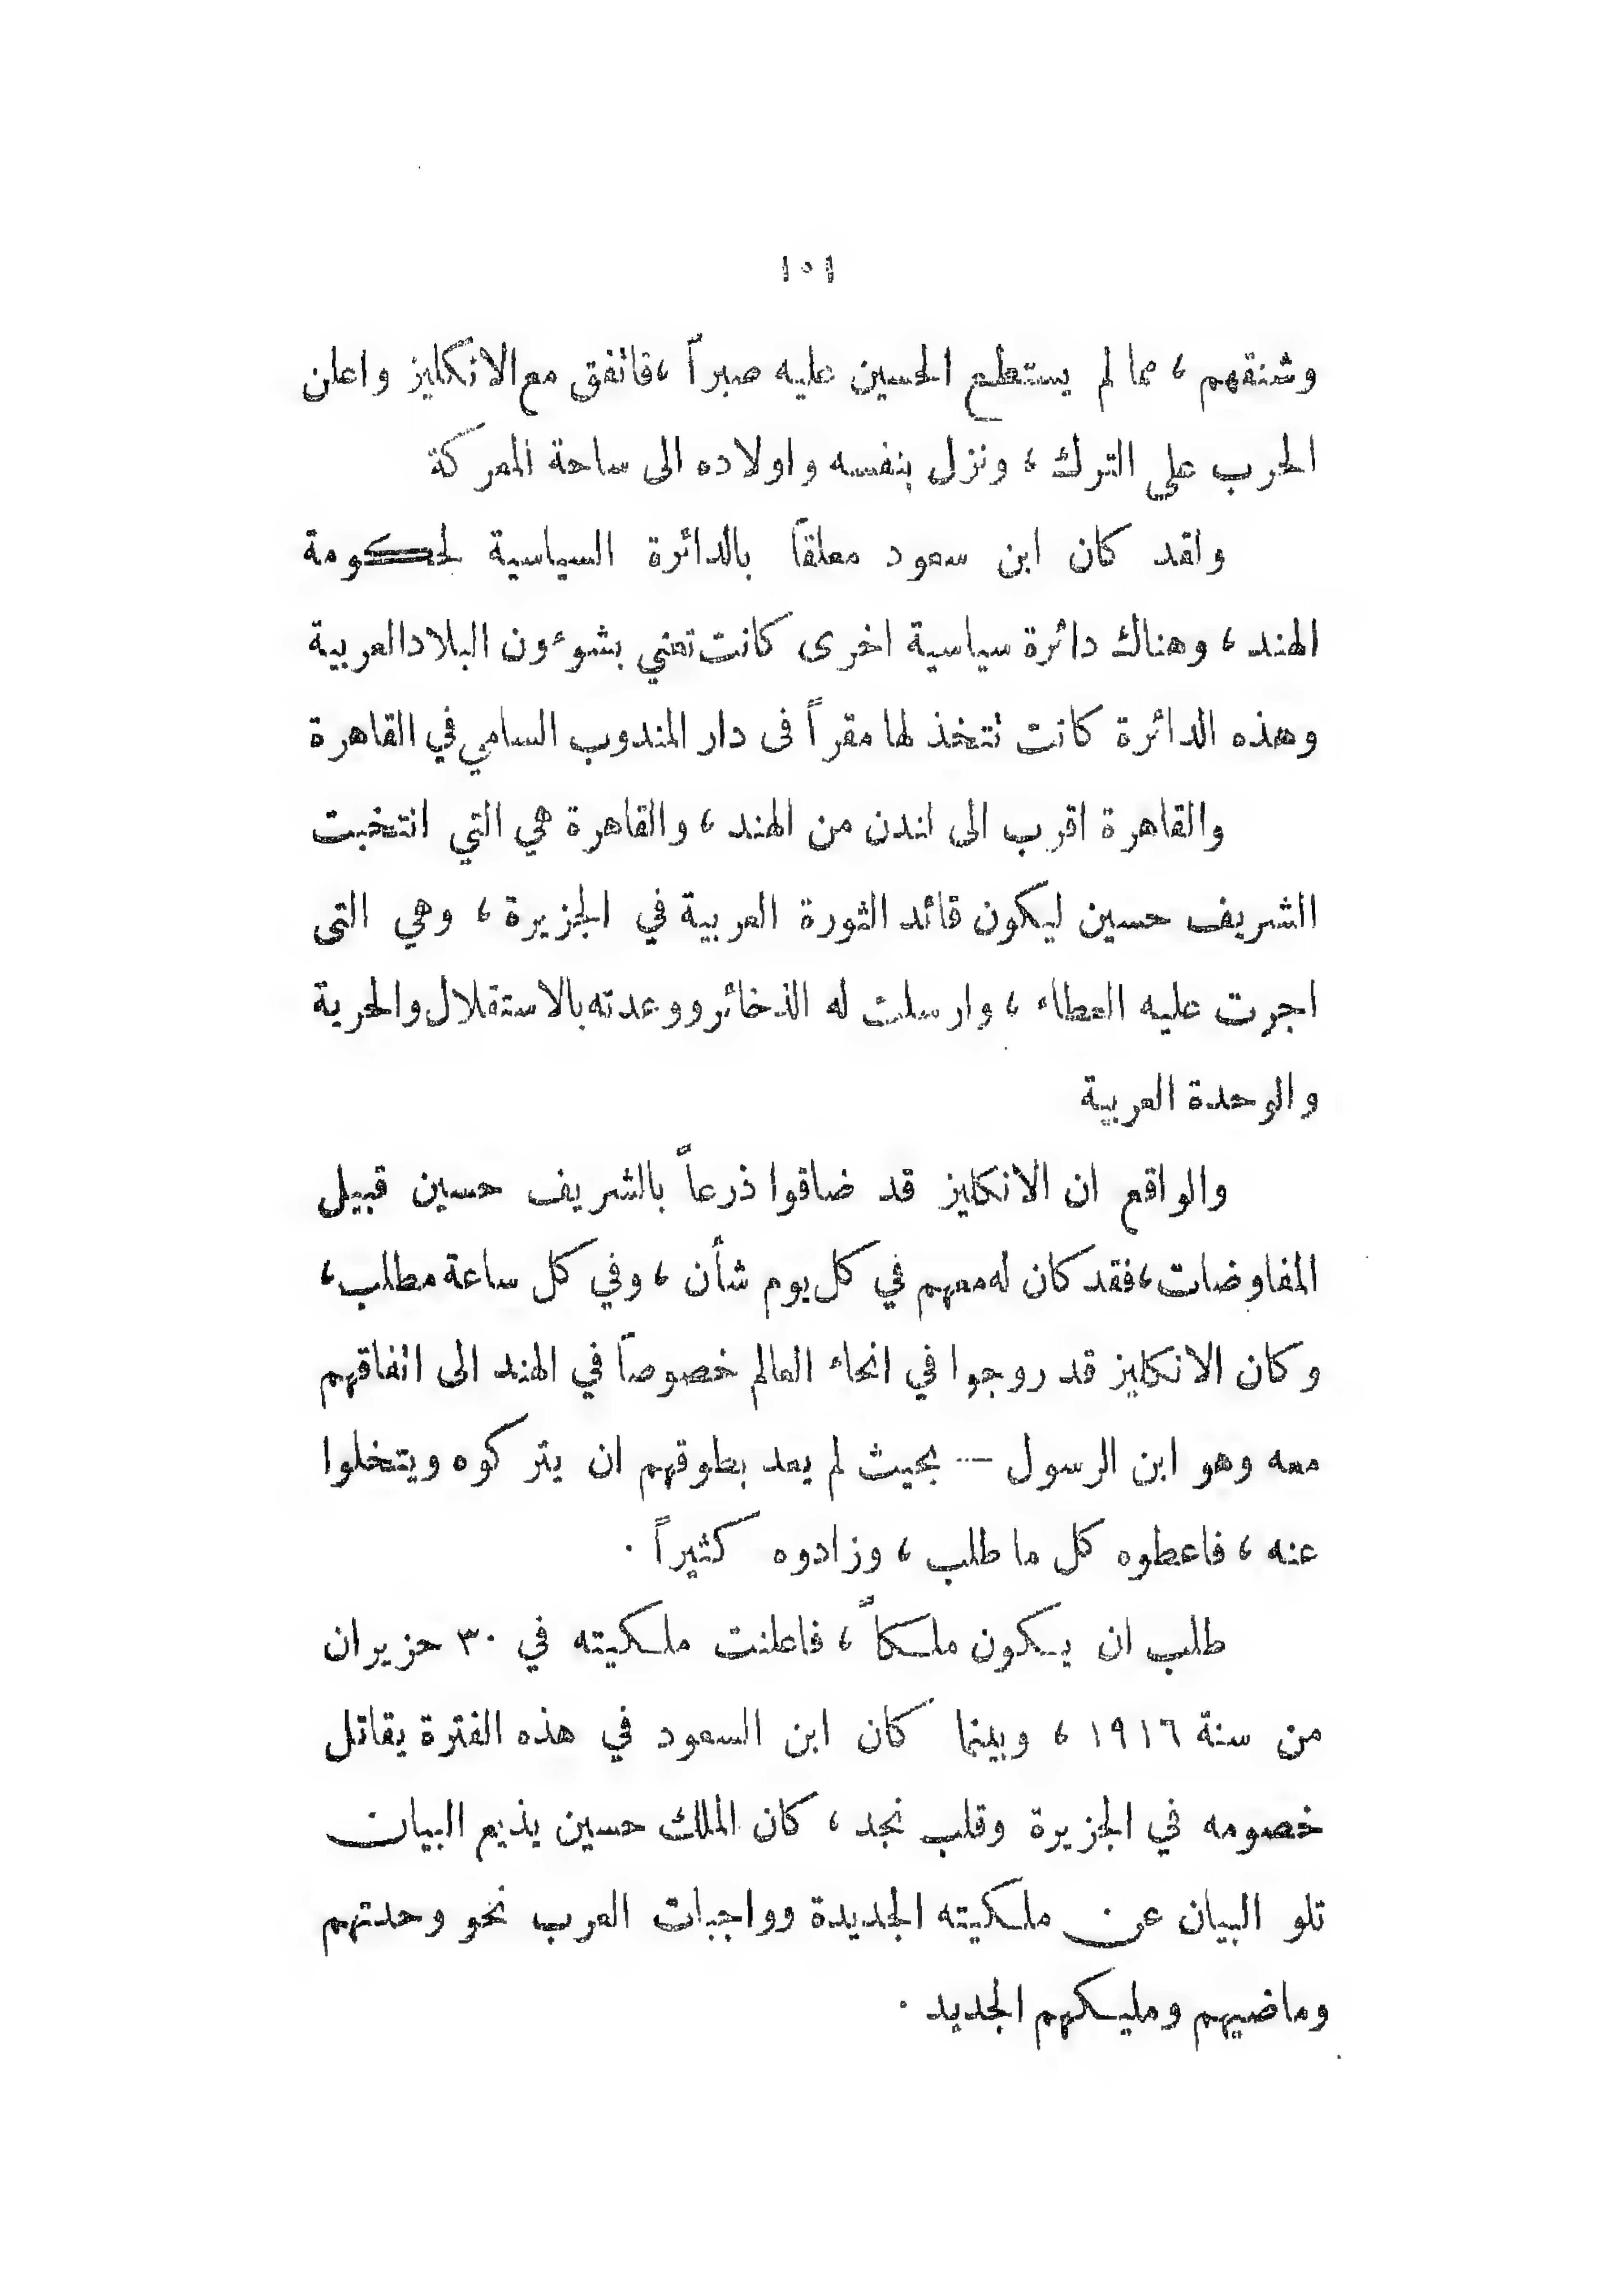 ١٥١
وشنقهم ، مما لم يستطع الحسين عليه صبراً ،فاتفق مع الانكليز واعلن
الحرب على الترك ، ونزل بنفسه واولاده الى ساحة المعركة
ولقد كان ابن سعود معلقاً بالدائرة السياسية لحكومة
الهند ، وهناك دائرة سياسية اخرى كانت تعني بشوءون البلاد العربية
وهذه الدائرة كانت تتخذ لها مقراً فى دار المندوب السامي في القاهرة
والقاهرة اقرب الى لندن من الهند ، والقاهرة هي التي انتخبت
الشريف حسين ليكون قائد الثورة العربية في الجزيرة ، وهي التى
اجرت عليه العطاء ، وارسلت له الذخائر ووعدته بالاستقلال والحرية
والوحدة العربية
والواقع ان الانكليز قد ضاقوا ذرعاً بالشريف حسين قبيل
المفاوضات ،فقد كان له معهم في كل يوم شأن ، وفي كل ساعة مطلب ،
وكان الانكليز قد روجوا في انحاء العالم خصوصاً في الهند الى اتفاقهم
معه وهو ابن الرسول — بحيث لم يعد بطوقهم ان يتركوه ويتخلوا
عنه ، فاعطوه كل ما طلب ، وزادوه كثيراً .
طلب ان يكون ملكاً ، فاعلنت ملكيته في ٣٠ حزيران
من سنة ١٩١٦ ، وبينما كان ابن السعود في هذه الفترة يقاتل
خصومه في الجزيرة وقلب نجد ، كان الملك حسين يذيع البيان
تلو البيان عن ملكيته الجديدة وواجبات العرب نحو وحدتهم
وماضيهم ومليكهم الجديد .